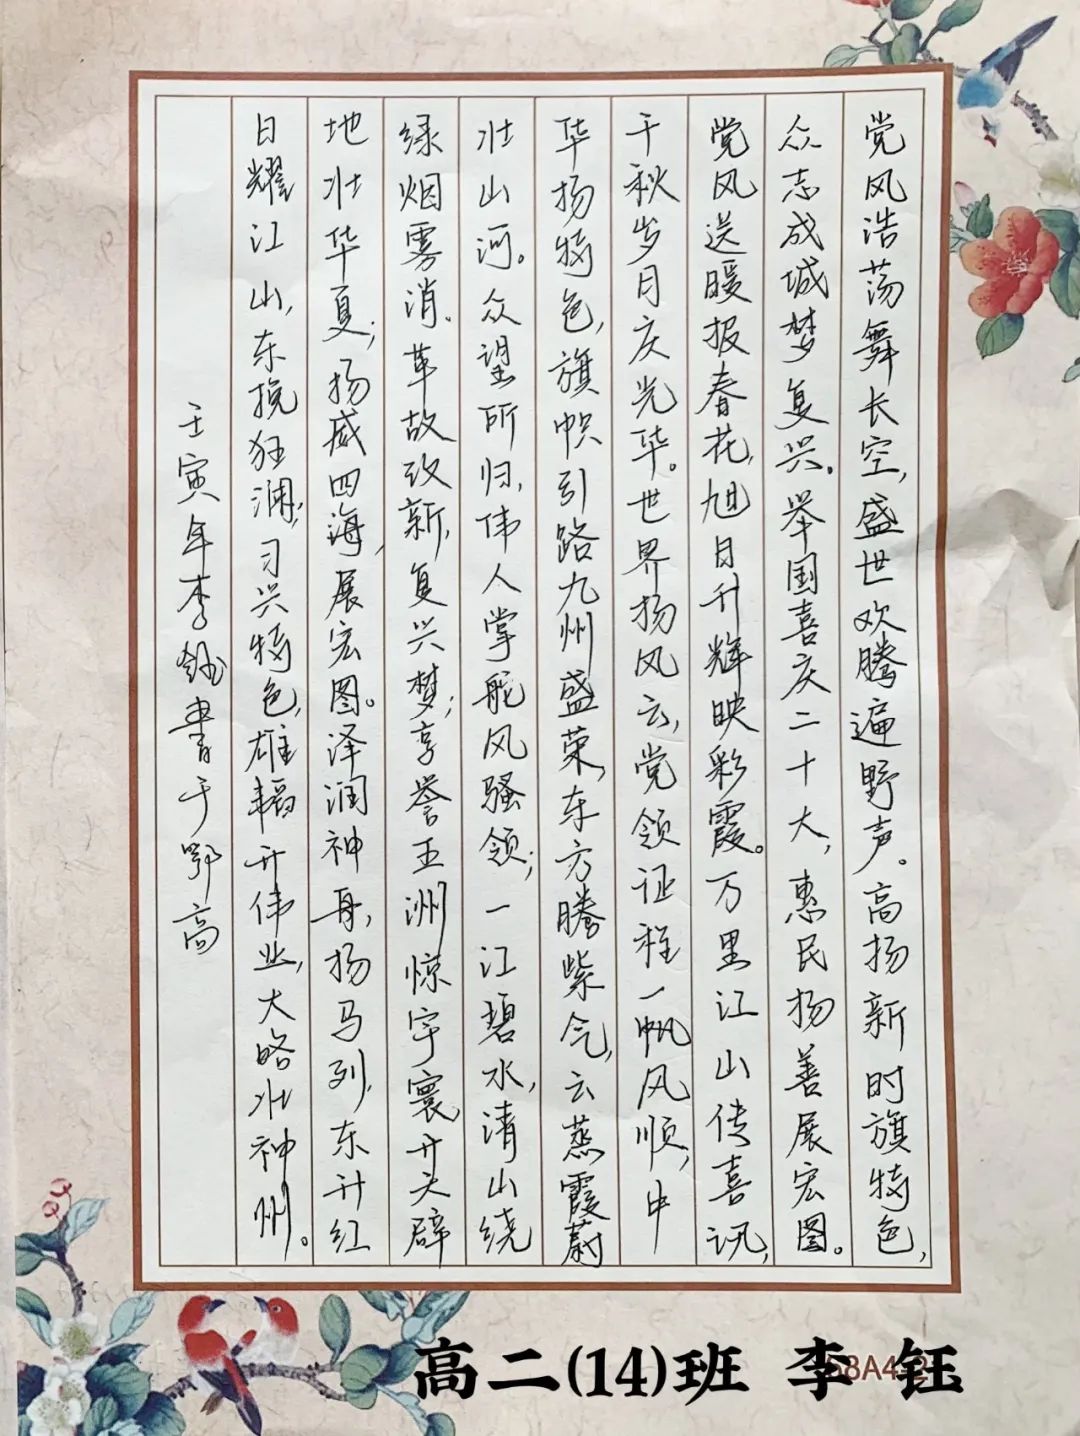 党风浩荡舞长空，盛世欢腾遍野声。高扬新时旗特色，
众志成城梦复兴。举国喜庆二十大，惠民扬善展宏图。
党风送暖报春花，旭日升辉映彩霞。万里江山传喜讯，
千秋岁月庆光华。世界扬风云，党领证程一帆风顺，中
华扬特色，旗帜引路九州盛荣，东方腾紫气，云蒸霞蔚
壮山河。众望所归，伟人掌舵风骚领；一江碧水，清山绕
绿烟雾消。革故改新，复兴梦；享誉五洲惊宇寰开天辟
地壮华夏；扬威四海，展宏图。泽润神舟，扬马列，东升红
日耀江山，东挽狂澜；习兴特色，雄韬升伟业，大略壮神州。
壬寅年李钰书于鄂高
高二(14)班 李 钰